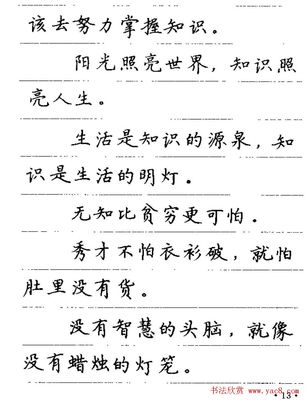 该去努力掌握知识。
阳光照亮世界，知识照
亮人生。
生活是知识的源泉，知
识是生活的明灯。
无知比贫穷更可怕。
秀才不怕衣衫破，就怕
肚里没有货。
没有智慧的头脑，就像
没有蜡烛的灯笼。
·13·
书法欣赏 www.yac8.com